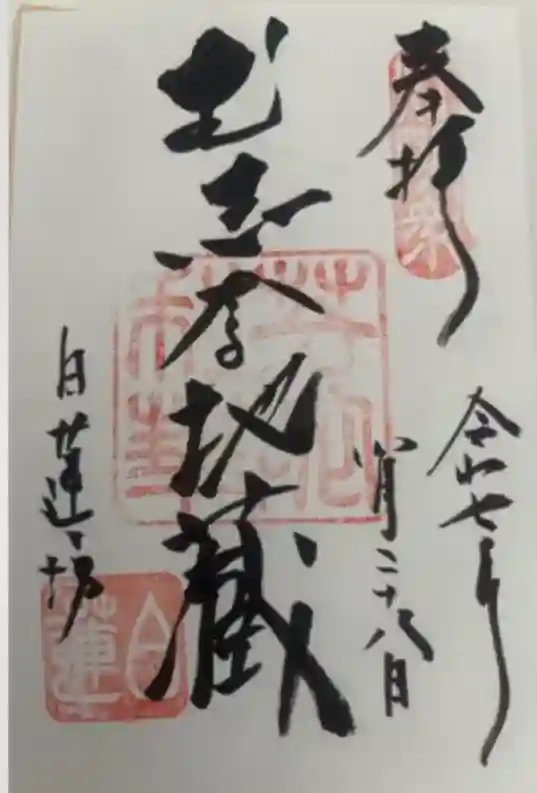 奉拝
令和七年
八月二十八日
武志奈地蔵
白蓮坊